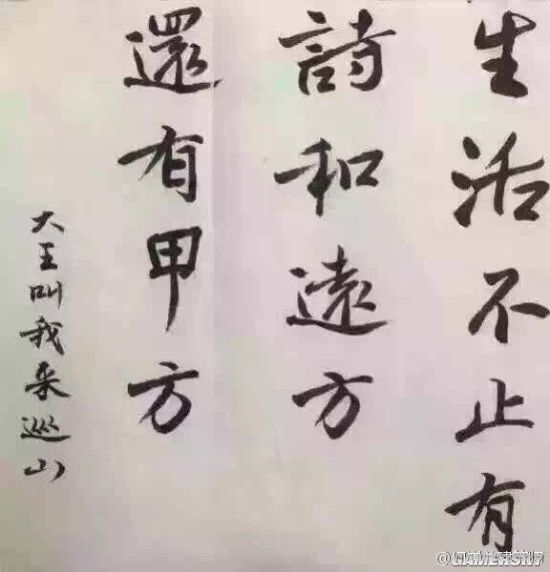 生活不止有
詩和遠方
還有甲方
大王叫我来巡山
GAMERSKY